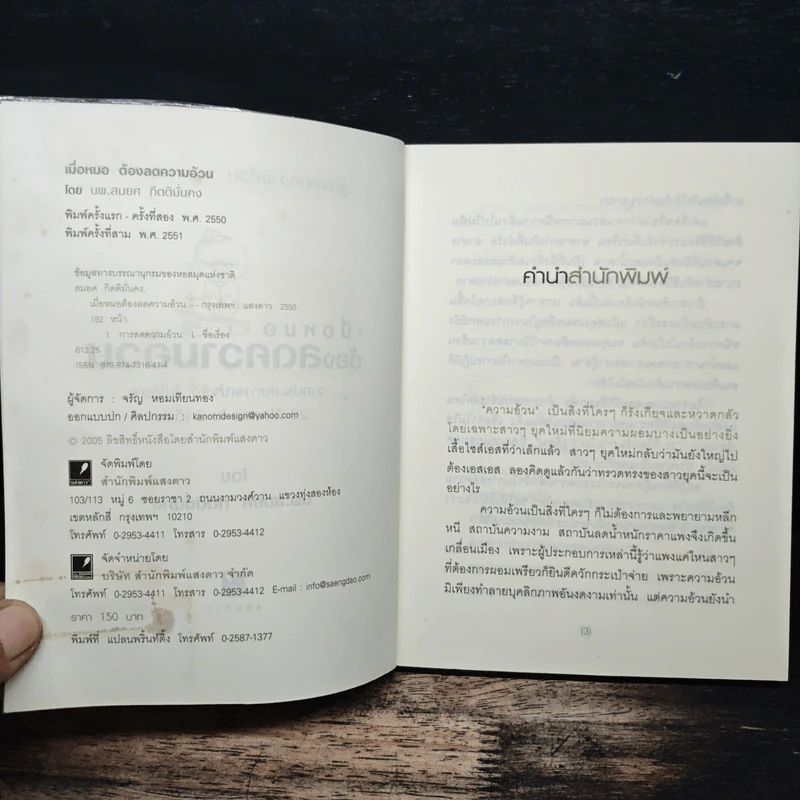 เมื่อหมอ ต้องลดความอ้วน
โดย นพ.สมยศ กิตติมั่นคง
พิมพ์ครั้งแรก - ครั้งที่สอง พ.ศ. 2550
พิมพ์ครั้งที่สาม พ.ศ. 2551
ข้อมูลทางบรรณานุกรมของหอสมุดแห่งชาติ
สมยศ กิตติมั่นคง.
เมื่อหมอต้องลดความอ้วน. - กรุงเทพฯ : แสงดาว, 2550
192. หน้า.
1. การลดความอ้วน. I. ชื่อเรื่อง
613.25
ISBN 978-974-7316-41-4
ผู้จัดการ : จรัญ หอมเทียนทอง
ออกแบบปก / ศิลปกรรม : kanomdesign@yahoo.com
© 2005 ลิขสิทธิ์หนังสือโดยสำนักพิมพ์แสงดาว
จัดพิมพ์โดย
สำนักพิมพ์แสงดาว
103/113 หมู่ 6 ซอยราชา 2 ถนนงามวงศ์วาน แขวงทุ่งสองห้อง
เขตหลักสี่ กรุงเทพฯ 10210
โทรศัพท์ 0-2953-4411 โทรสาร 0-2953-4412
จัดจำหน่ายโดย
บริษัท สำนักพิมพ์แสงดาว จำกัด
โทรศัพท์ 0-2953-4411 โทรสาร 0-2953-4412 E-mail : info@saengdao.com
ราคา 150 บาท
พิมพ์ที่ แปลนพริ้นท์ติ้ง โทรศัพท์ 0-2587-1377
คำนำสำนักพิมพ์
'ความอ้วน' เป็นสิ่งที่ใครๆ ก็รังเกียจและหวาดกลัว
โดยเฉพาะสาวๆ ยุคใหม่ที่นิยมความผอมบางเป็นอย่างยิ่ง
เสื้อไซส์เอสที่ว่าเล็กแล้ว สาวๆ ยุคใหม่กลับว่ามันยังใหญ่ไป
ต้องเอสเอส ลองคิดดูแล้วกันว่าทรวดทรงของสาวยุคนี้จะเป็น
อย่างไร
ความอ้วนเป็นสิ่งที่ใครๆ ก็ไม่ต้องการและพยายามหลีก
หนี สถาบันความงาม สถาบันลดน้ำหนักราคาแพงจึงเกิดขึ้น
เกลื่อนเมือง เพราะผู้ประกอบการเหล่านี้รู้ว่าแพงแค่ไหนสาวๆ
ที่ต้องการผอมเพรียวก็ยินดีควักกระเป๋าจ่าย เพราะความอ้วน
มิเพียงทำลายบุคลิกภาพอันงดงามเท่านั้น แต่ความอ้วนยังนำ
(3)